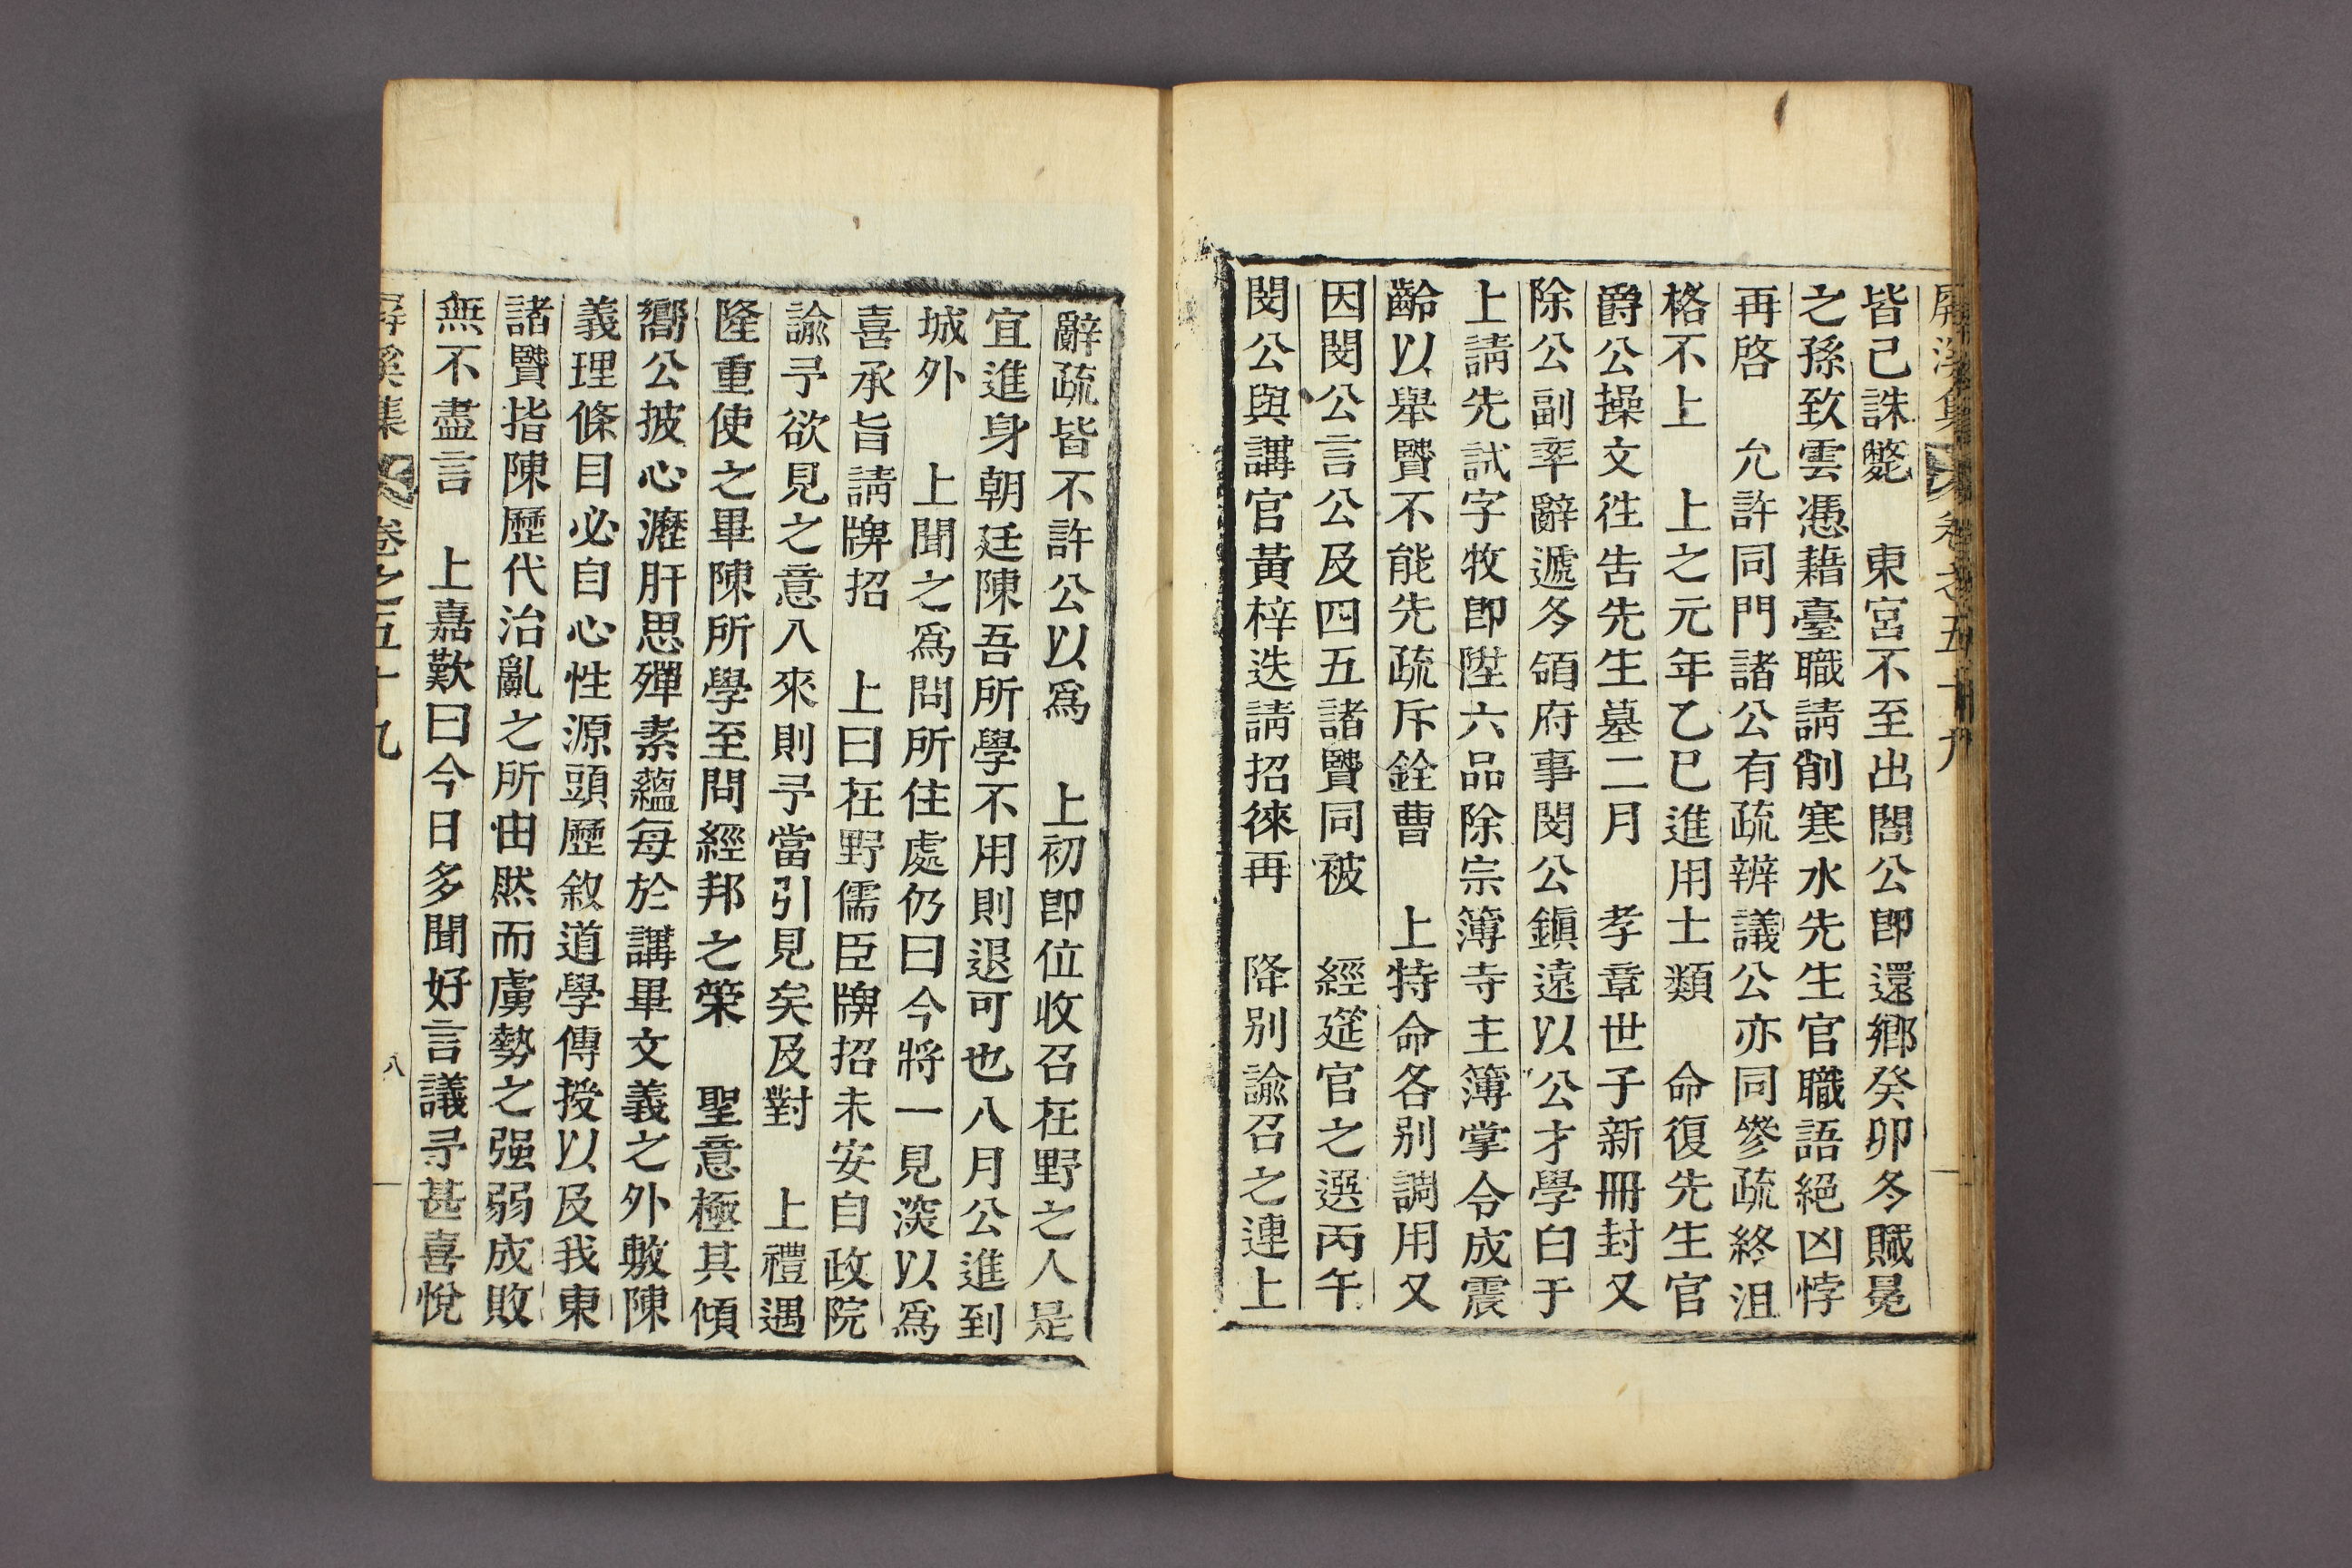 屛溪集 卷之五十九
皆已誅斃 東宮不至出閤公卽還鄕癸卯冬贓冕
之孫致雲憑藉臺職請削寒水先生官職語絕凶悖
再啓 允許同門諸公有疏辨議公亦同參疏終沮
格不上 上之元年乙巳進用士類 命復先生官
爵公操文徃告先生墓二月 孝章世子新冊封又
除公副率辭遞冬領府事閔公鎭遠以公才學白于
上請先試字牧卽陞六品除宗簿寺主簿掌令成震
齡以舉贒不能先疏斥銓曹 上特命各別調用又
因閔公言公及四五諸贒同被 經筵官之選丙午
閔公與講官黃梓迭請招徠再 降別諭召之連上
辭疏皆不許公以爲 上初卽位收召在野之人是
宜進身朝廷陳吾所學不用則退可也八月公進到
城外 上聞之爲問所住處仍曰今將一見深以爲
喜承旨請牌招 上曰在野儒臣牌招未安自政院
諭予欲見之意入來則予當引見矣及對 上禮遇
隆重使之畢陳所學至問經邦之策 聖意極其傾
嚮公披心瀝肝思殫素蘊每於講畢文義之外敷陳
義理條目必自心性源頭歷敘道學傳授以及我東
諸贒揩陳歷代治亂之所由然而虜勢之强弱成敗
無不盡言 上嘉歎曰今日多聞好言議予甚喜悅
屛溪集 卷之五十九 八